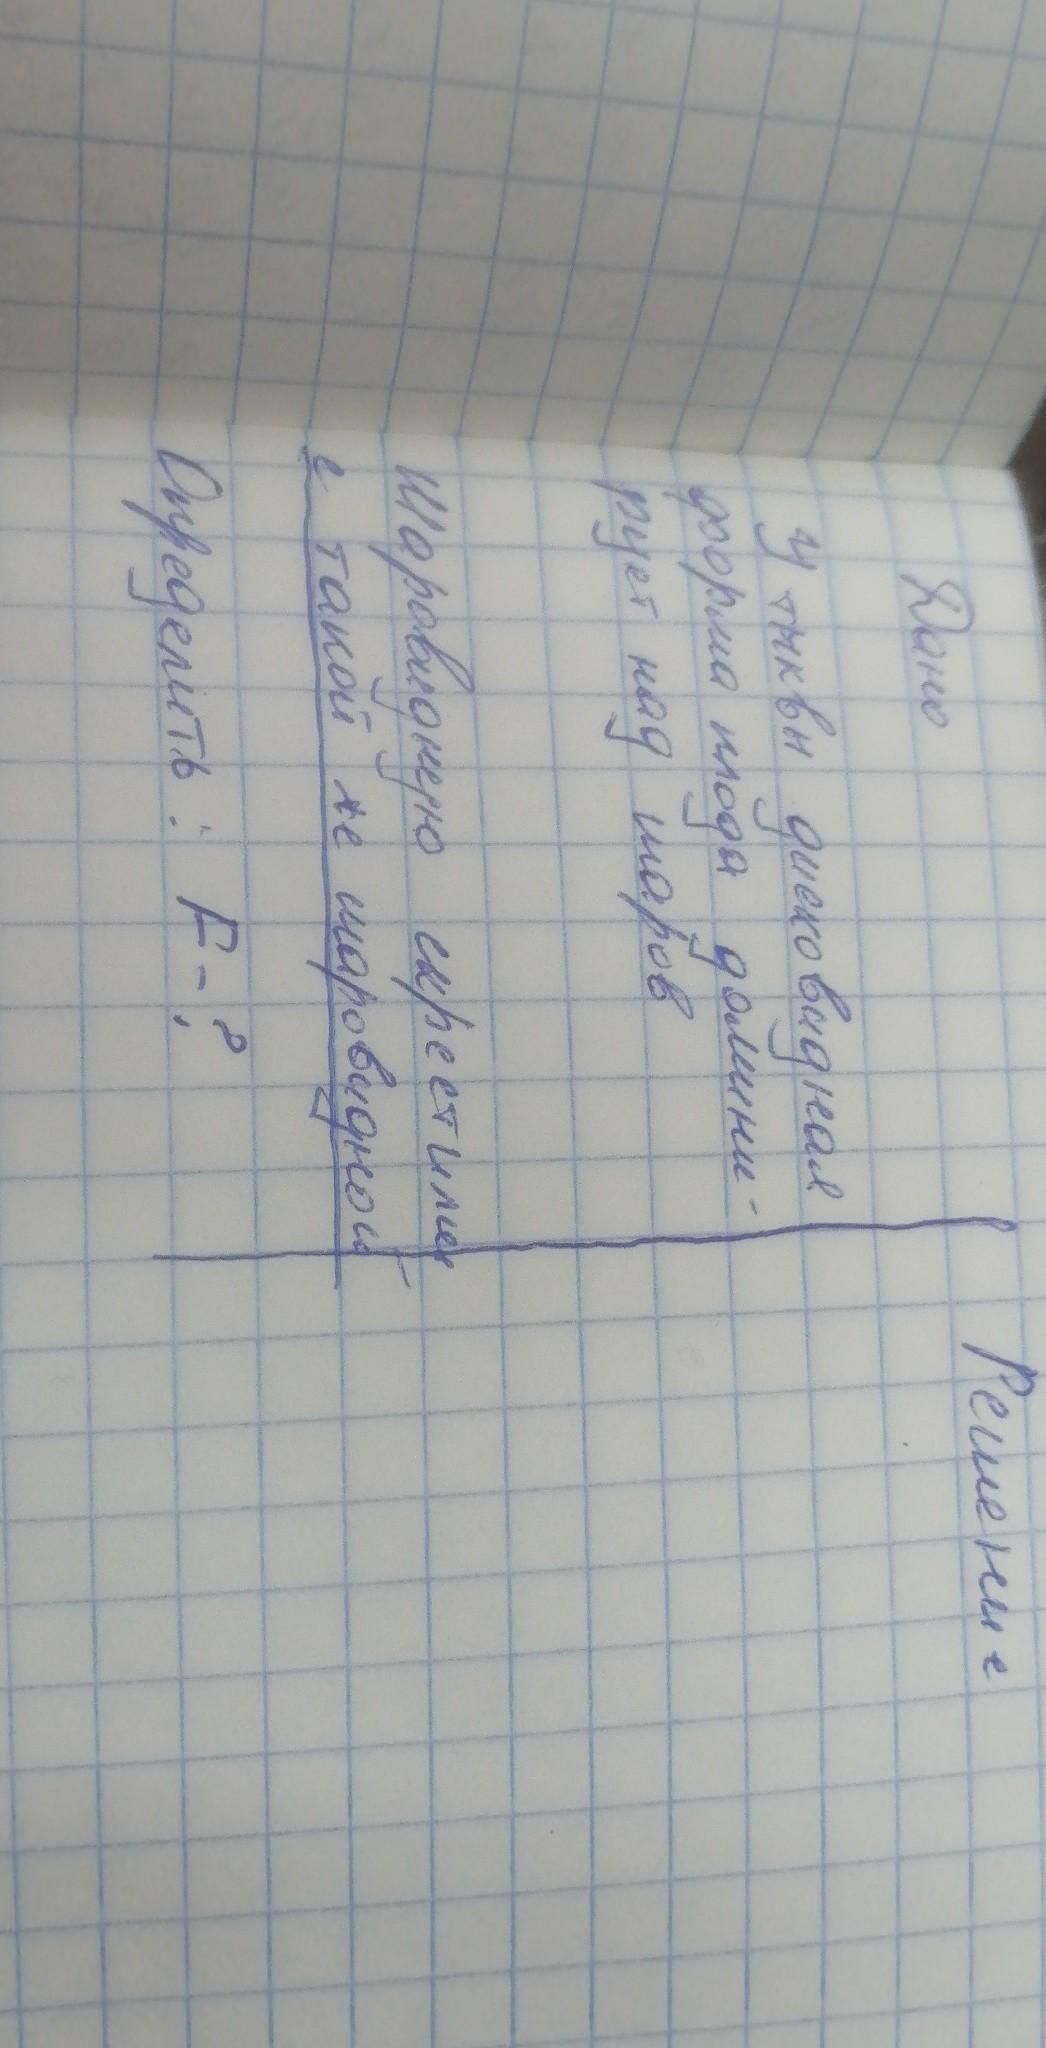 Дано
Решение
У тыквы дисковидная
форма плода домини-
рует над шаров
Шаровидную скрестили
с такой же шаровидной
Определить: F-?